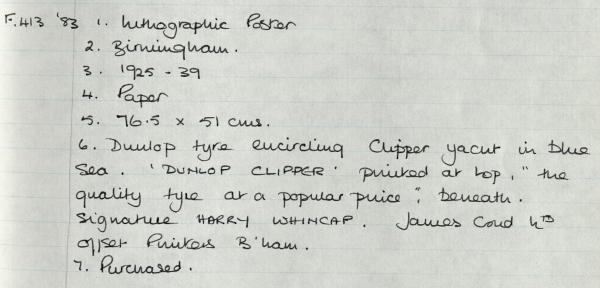 F.413 '83 1. Lithographic Poster
2. Birmingham.
3. 1925 - 39
4. Paper
5. 76.5 x 51 cms.
6. Dunlop tyre encircling Clipper yacht in blue
Sea. 'DUNLOP CLIPPER' printed at top, "the
quality tyre at a popular price", beneath.
Signature HARRY WHINCAP. James Cond LTD
offset Printers B'ham.
7. Purchased.